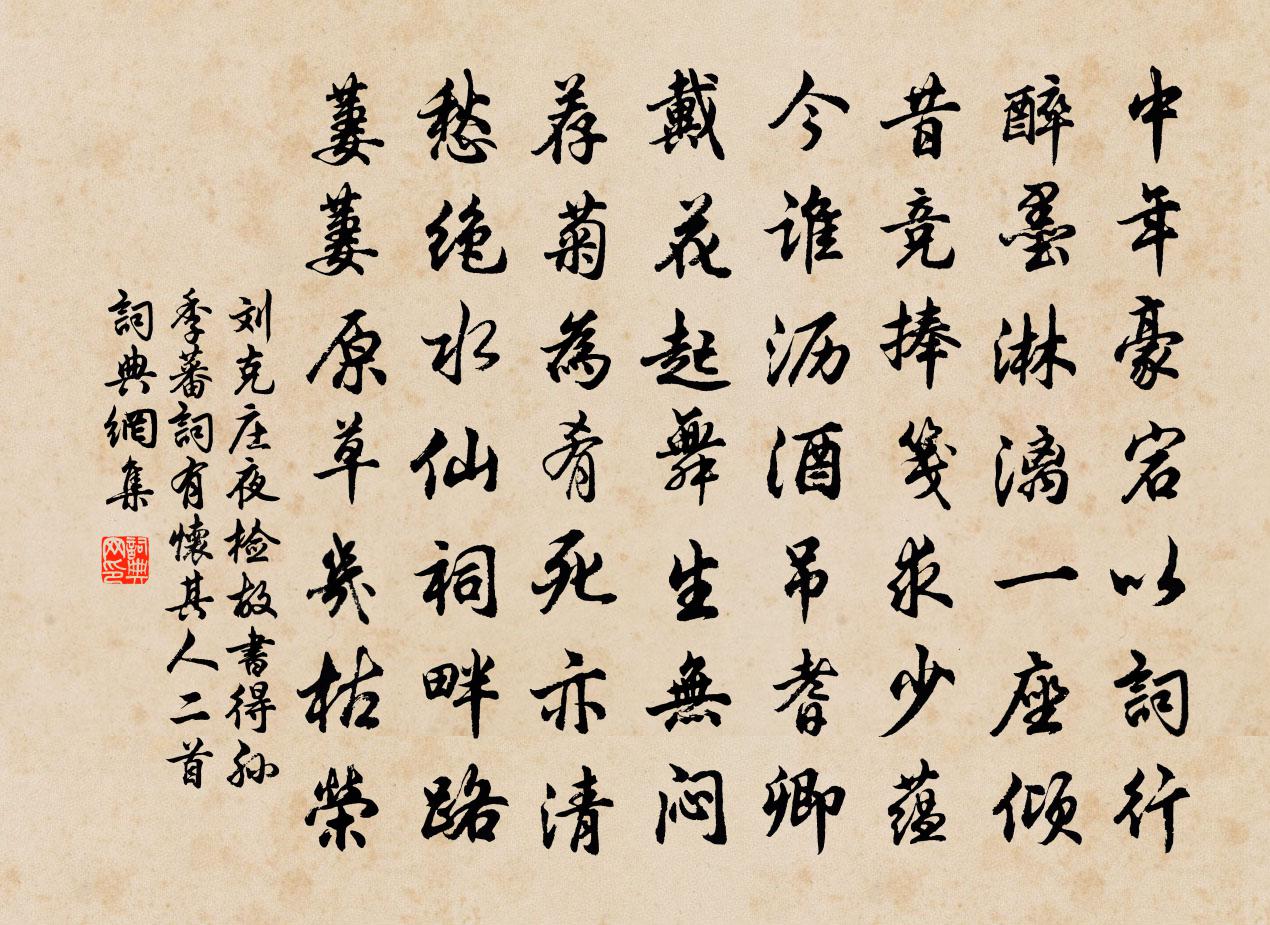 中年豪宕以詞行
醉墨淋漓一座傾
昔竞捧箋求少蕴
今谁沥酒吊耆卿
戴花起舞生無闷
荐菊為肴死亦清
愁绝水仙祠畔路
萋萋原草幾枯榮
刘克庄夜检故書得孙
季蕃詞有懷其人二首
詞典網集
詞典网印